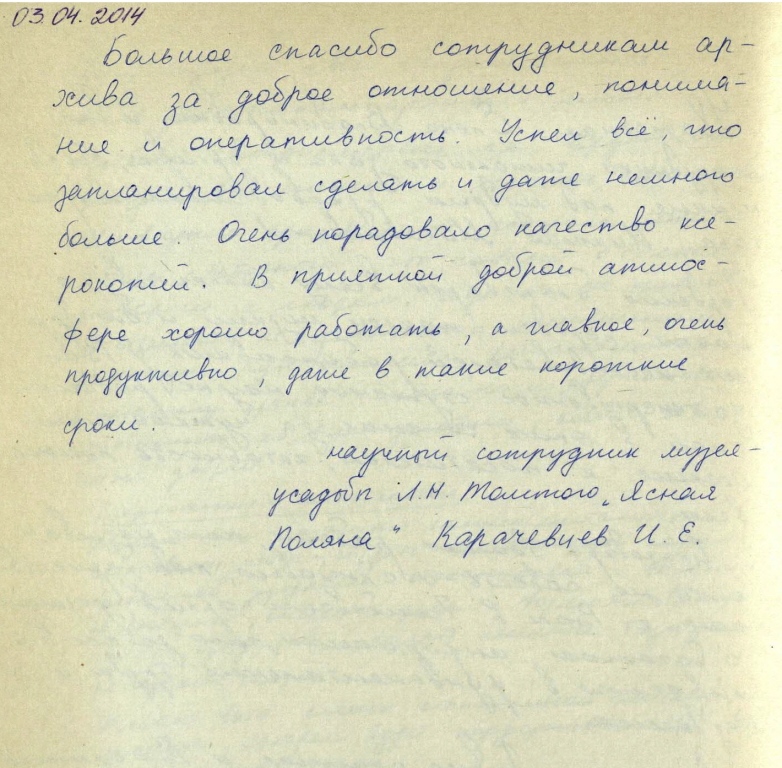 03.04.2014
Большое спасибо сотрудникам ар-
хива за доброе отношение, понима-
ние и оперативность. Успел всё, что
запланировал сделать и даже немного
больше. Очень порадовало качество ксе-
рокопий. В приятной доброй атмос-
фере хорошо работать, а главное, очень
продуктивно, даже в такие короткие
сроки.
научный сотрудник музея-
усадьбы Л.Н. Толстого „Ясная
Поляна“ Карачевцев И. Е.